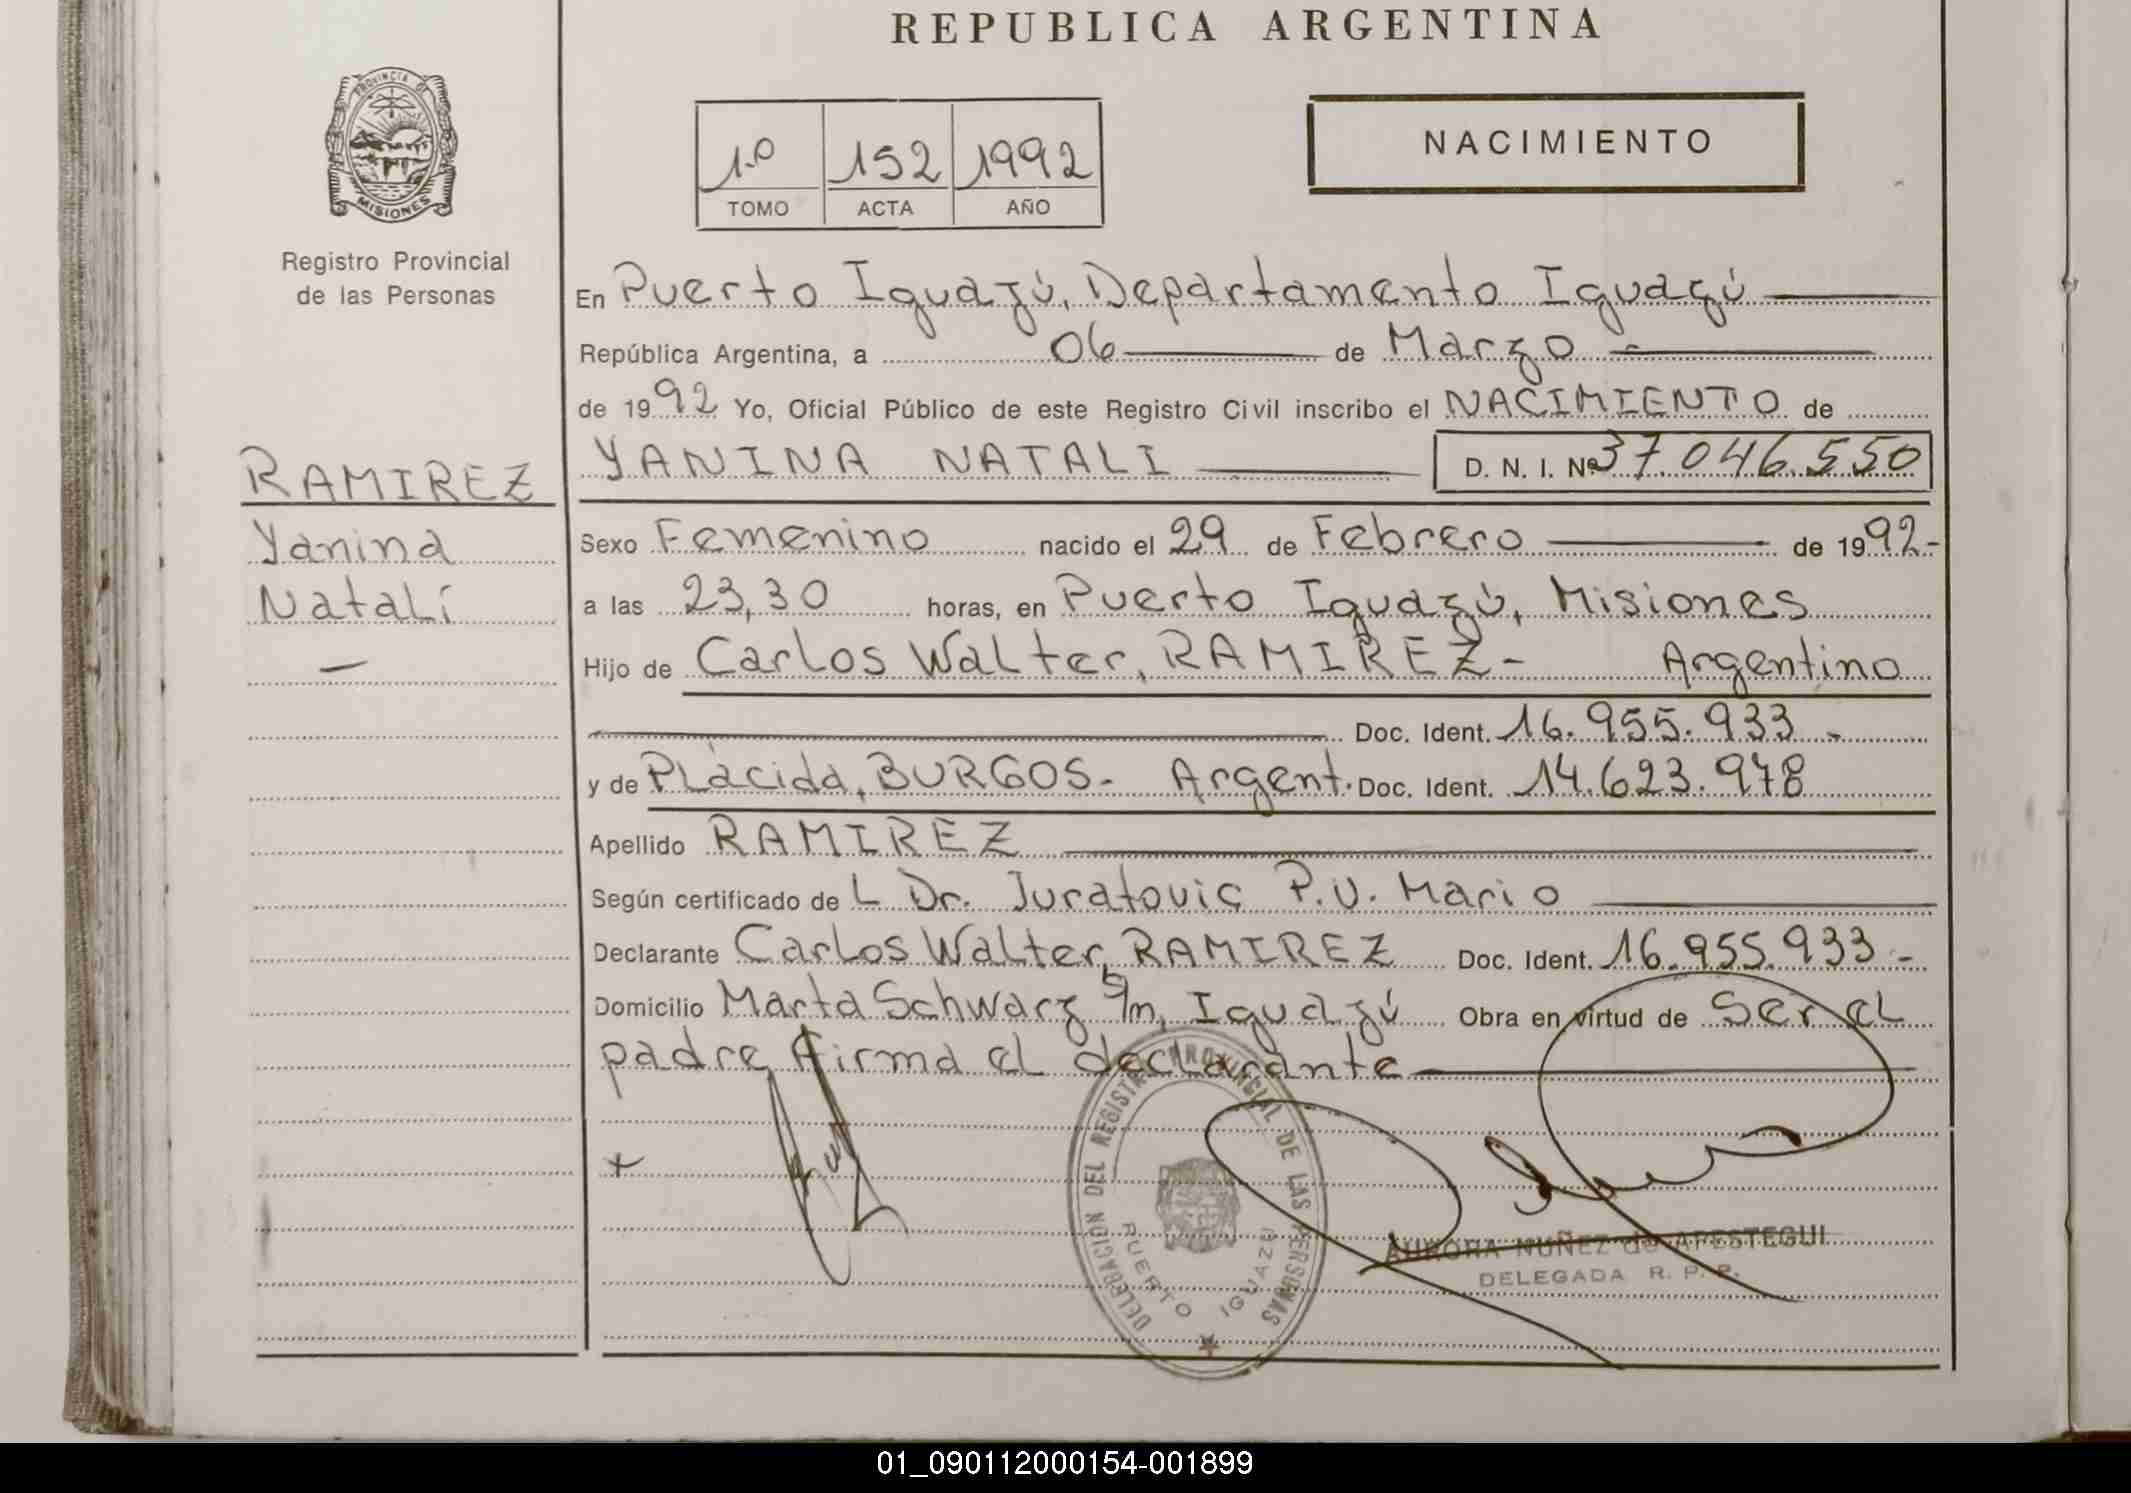 REPUBLICA ARGENTINA
PROVINCIA DE
MISIONES
1.º 152 1992
TOMO ACTA AÑO
NACIMIENTO
Registro Provincial
de las Personas
En Puerto Iguazú, Departamento Iguazú
República Argentina, a 06 de Marzo
de 1992 Yo, Oficial Público de este Registro Civil inscribo el NACIMIENTO de
RAMIREZ
Yanina
Natalí
YANINA NATALI D. N. I. Nº 37.046.550
Sexo Femenino nacido el 29 de Febrero de 1992-
a las 23,30 horas, en Puerto Iguazú, Misiones
Hijo de Carlos Walter, RAMIREZ- Argentino
Doc. Ident. 16.955.933 -
y de Plácida, BURGOS- Argent. Doc. Ident. 14.623.978
Apellido RAMIREZ
Según certificado de L Dr. Juratovic P.U. Mario
Declarante Carlos Walter, RAMIREZ Doc. Ident. 16.955.933 -
Domicilio Marta Schwarz S/n, Iguazú Obra en virtud de Ser el
padre, firma el declarante
DELEGACION DEL REGISTRO PROVINCIAL DE LAS PERSONAS
PUERTO IGUAZU
AURORA NUÑEZ de APESTEGUI
DELEGADA R. P. P.
01_090112000154-001899